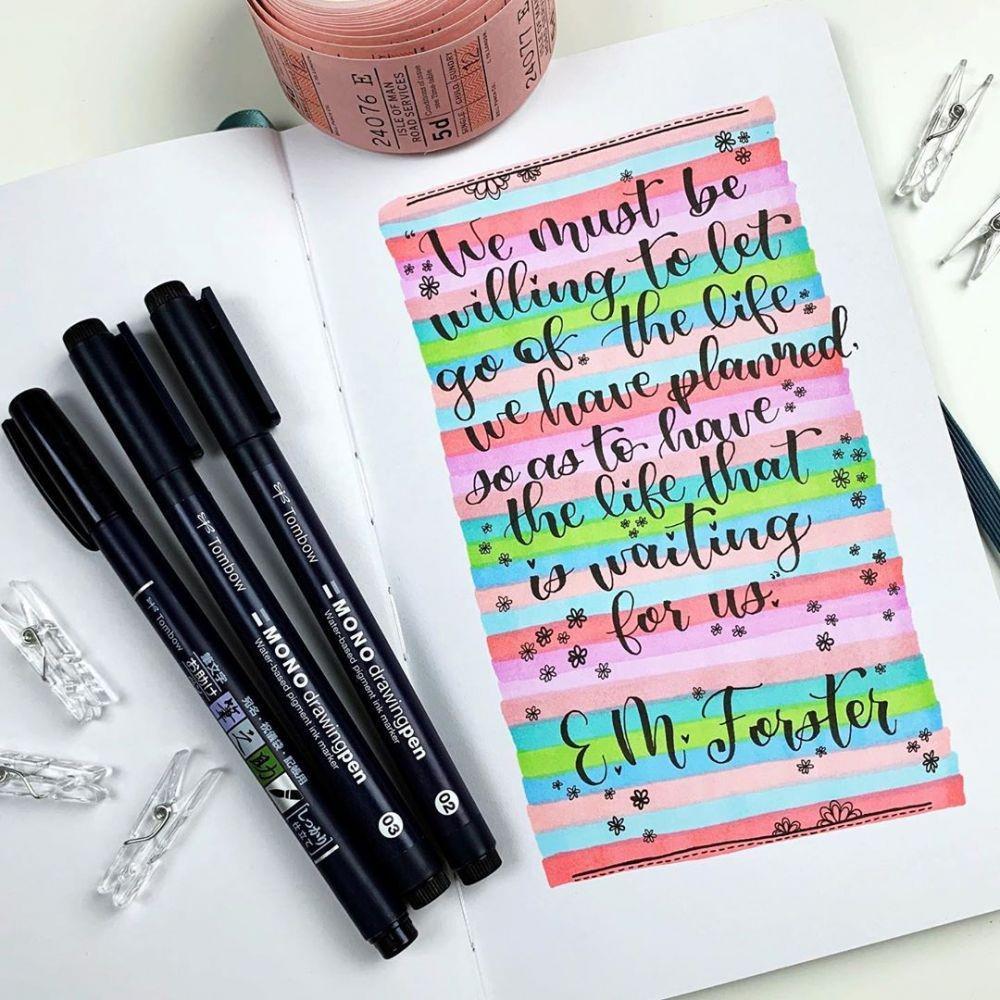 24076 E
ISLE OF MAN
ROAD SERVICES
5d
SINGLE
CHILD
SUNDRY
12
24077 E
"We must be
willing to let
go of the life
we have planned,
so as to have
the life that
is waiting
for us."
E.M. Forster
Tombow
MONO drawingpen
Water-based pigment ink marker
02
Tombow
MONO drawingpen
Water-based pigment ink marker
03
Tombow
筆文字
お助け
筆之助
しっかり
仕立て